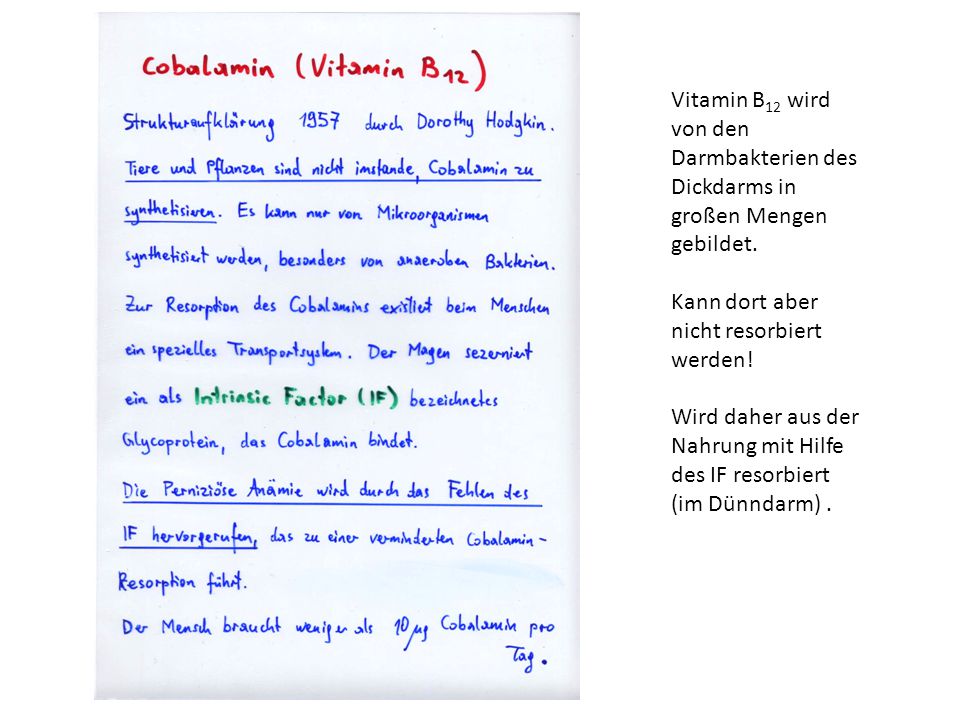 Cobalamin (Vitamin B12)
Strukturaufklärung 1957 durch Dorothy Hodgkin.
Tiere und Pflanzen sind nicht imstande, Cobalamin zu
synthetisieren. Es kann nur von Mikroorganismen
synthetisiert werden, besonders von anaeroben Bakterien.
Zur Resorption des Cobalamins existiert beim Menschen
ein spezielles Transportsystem. Der Magen sezerniert
ein als Intrinsic Factor (IF) bezeichnetes
Glycoprotein, das Cobalamin bindet.
Die Perniziöse Anämie wird durch das Fehlen des
IF hervorgerufen, das zu einer verminderten Cobalamin-
Resorption führt.
Der Mensch braucht weniger als 10 µg Cobalamin pro
Tag.
Vitamin B12 wird
von den
Darmbakterien des
Dickdarms in
großen Mengen
gebildet.
Kann dort aber
nicht resorbiert
werden!
Wird daher aus der
Nahrung mit Hilfe
des IF resorbiert
(im Dünndarm) .